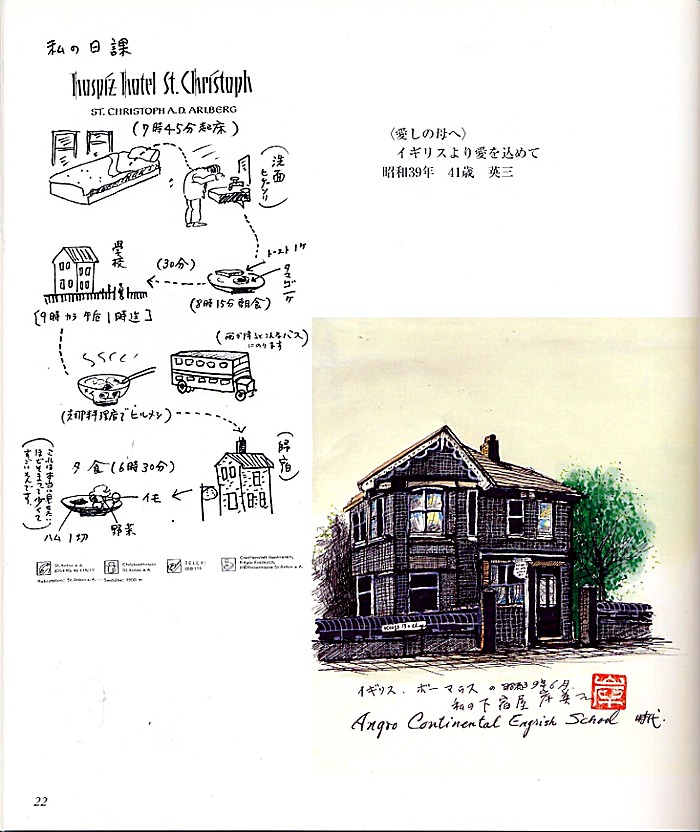 私の日課
hospiz hotel St. Christoph
ST. CHRISTOPH A.D. ARLBERG
(7時45分起床)
(洗面
ヒゲソリ)
トースト1ケ
タマゴ1ケ
(8時15分朝食)
(30分)
学校
[9時カラ午后1時迄]
(雨が降るとこんなバス
にのります)
(支那料理店でヒルメシ)
(帰宿)
夕食(6時30分)
イモ
野菜
ハム1切
(これは本当に見た
ほどそまつで少くて
すごいもんです。)
St. Anton a. A.
Christophorus
St. Anton a. A.
TELEX:
〈愛しの母へ〉
イギリスより愛を込めて
昭和39年　41歳　英三
イギリス.ボーマラスの昭和39年6月.
私の下宿屋
Angro Continental Engrish School 時代.
22